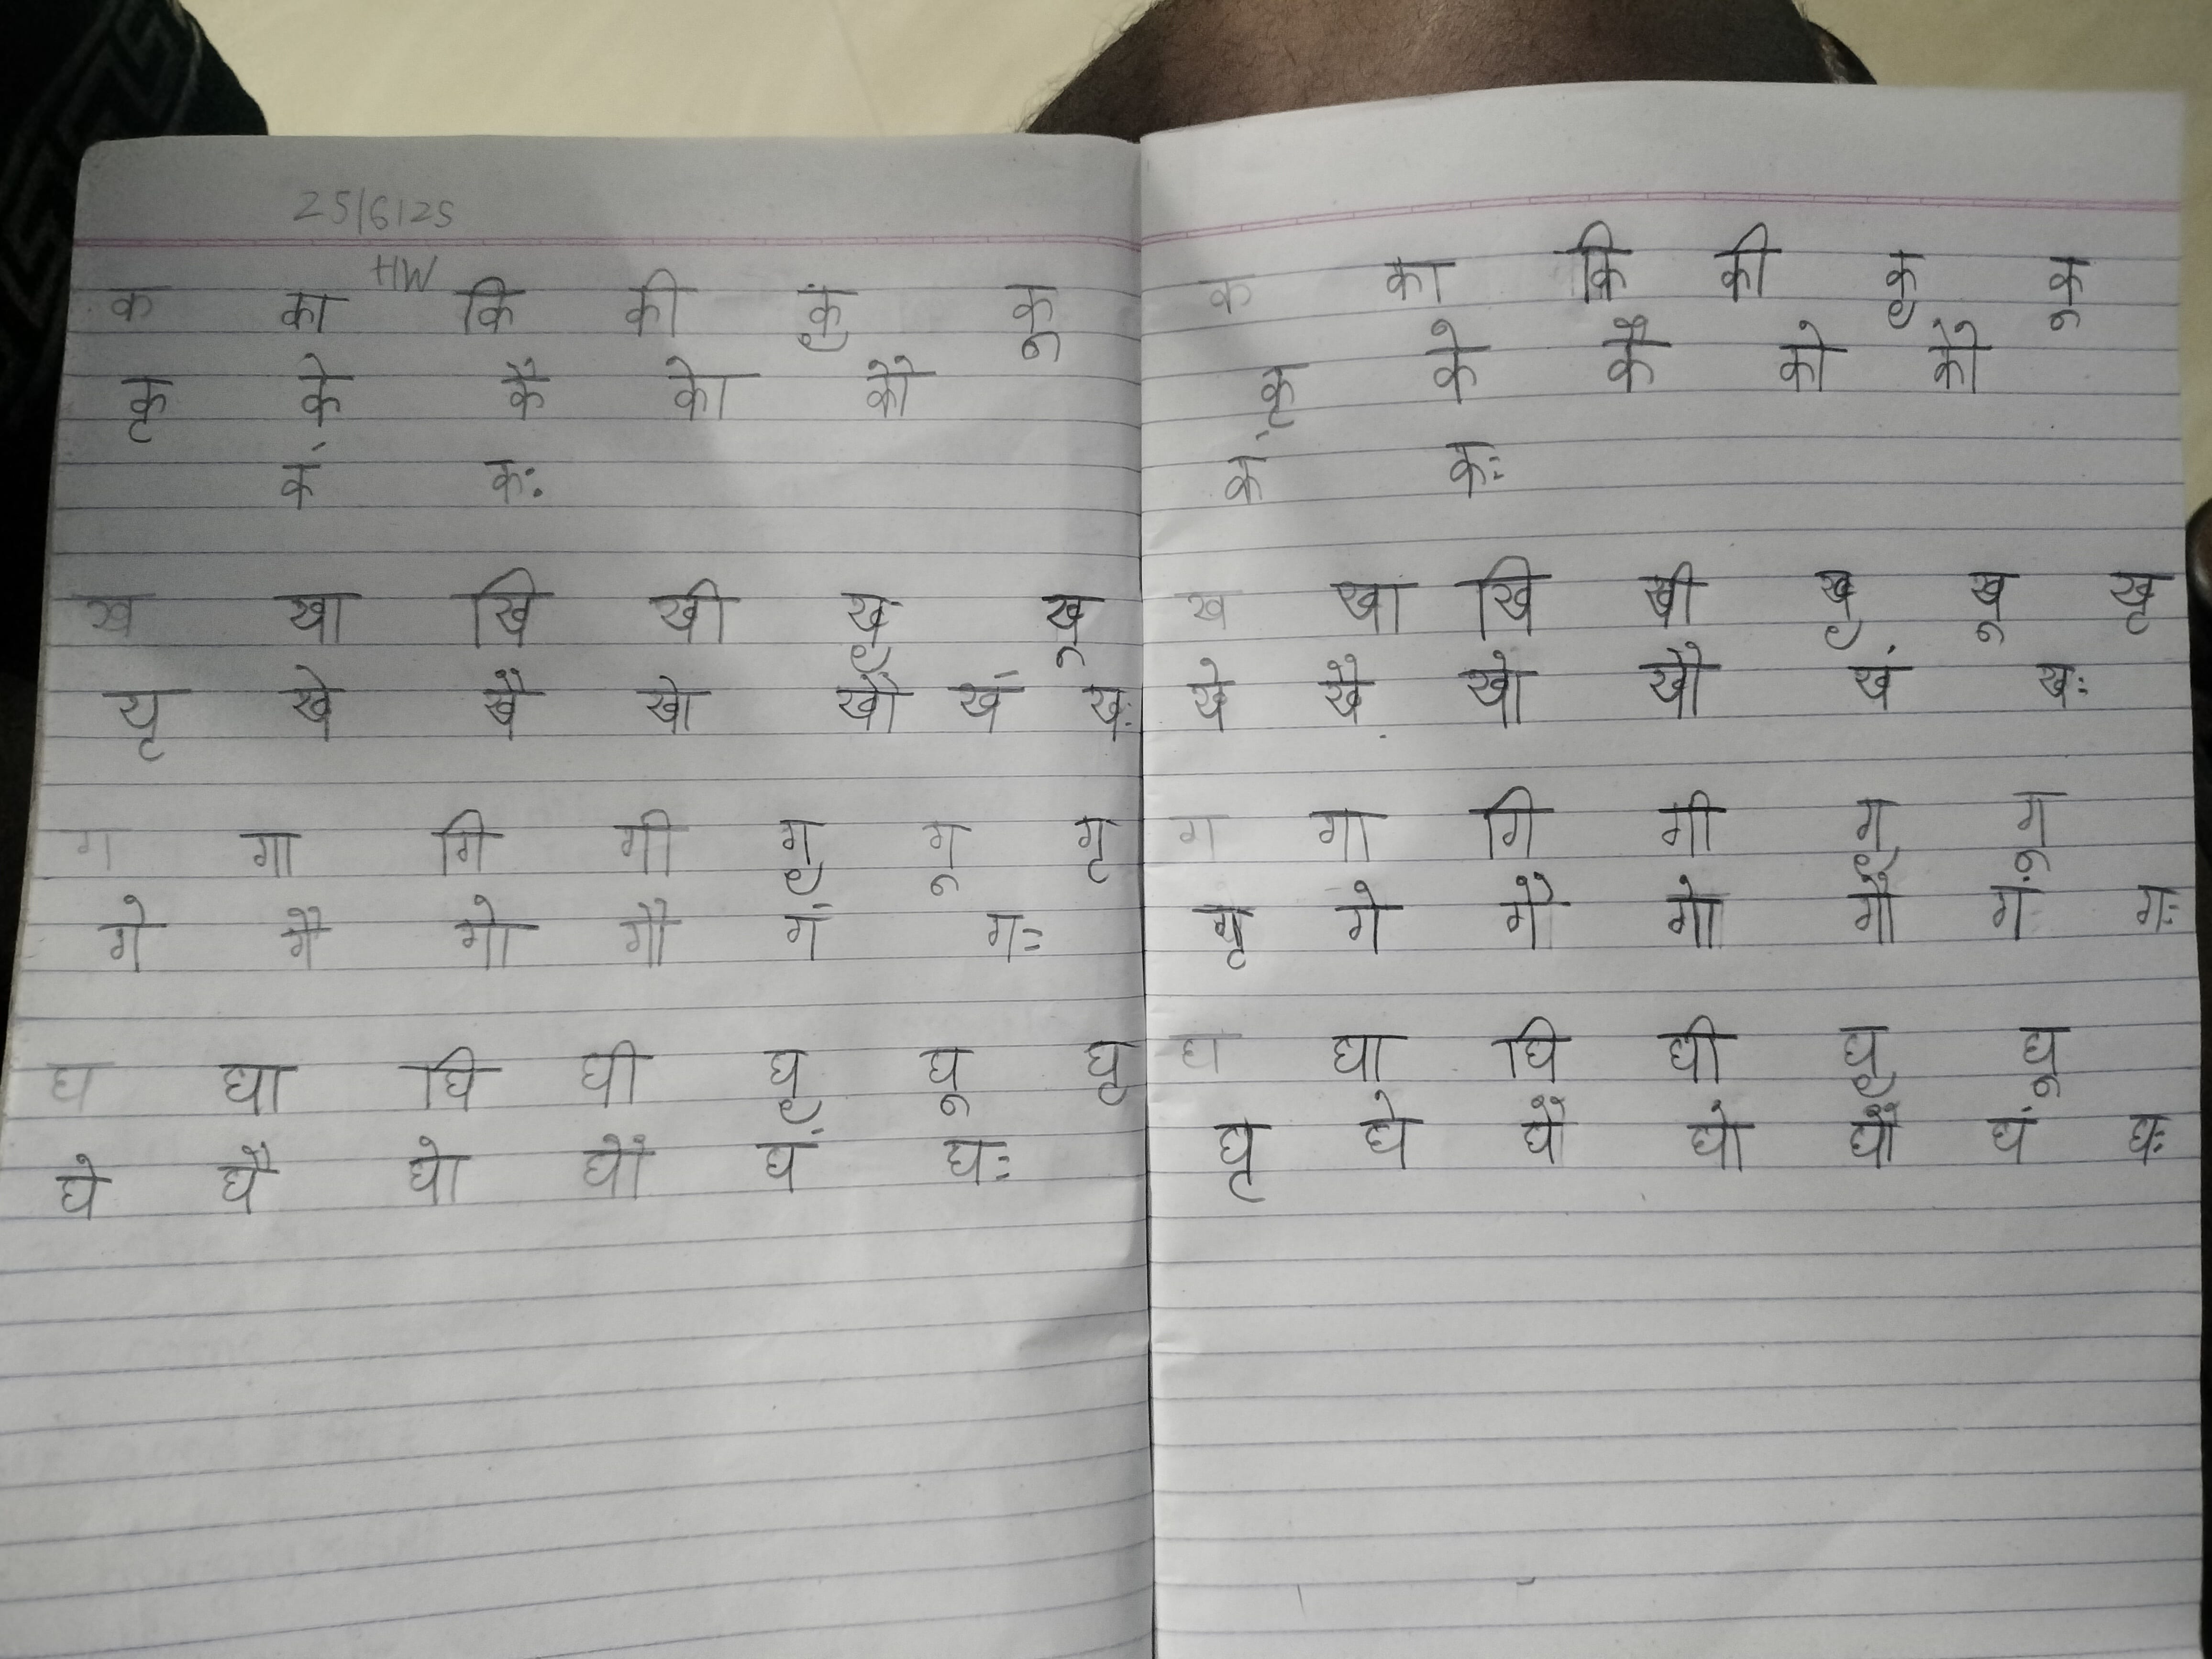 25/6/25
HW
क का कि की कु कू
कृ के कै को कौ
कं कः
ख खा खि खी खु खू
खृ खे खै खो खौ खं खः
ग गा गि गी गु गू गृ
गे गै गो गौ गं गः
घ घा घि घी घु घू घृ
घे घै घो घौ घं घः
क का कि की कु कू
कृ के कै को कौ
कं कः
ख खा खि खी खु खू खृ
खे खै खो खौ खं खः
ग गा गि गी गु गू
गृ गे गै गो गौ गं गः
घ घा घि घी घु घू
घृ घे घै घो घौ घं घः